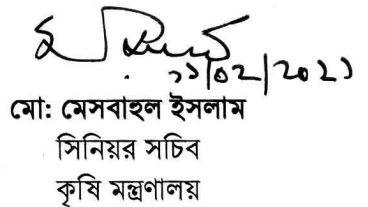 ১১/০২/২০২১
মো: মেসবাহুল ইসলাম
সিনিয়র সচিব
কৃষি মন্ত্রণালয়